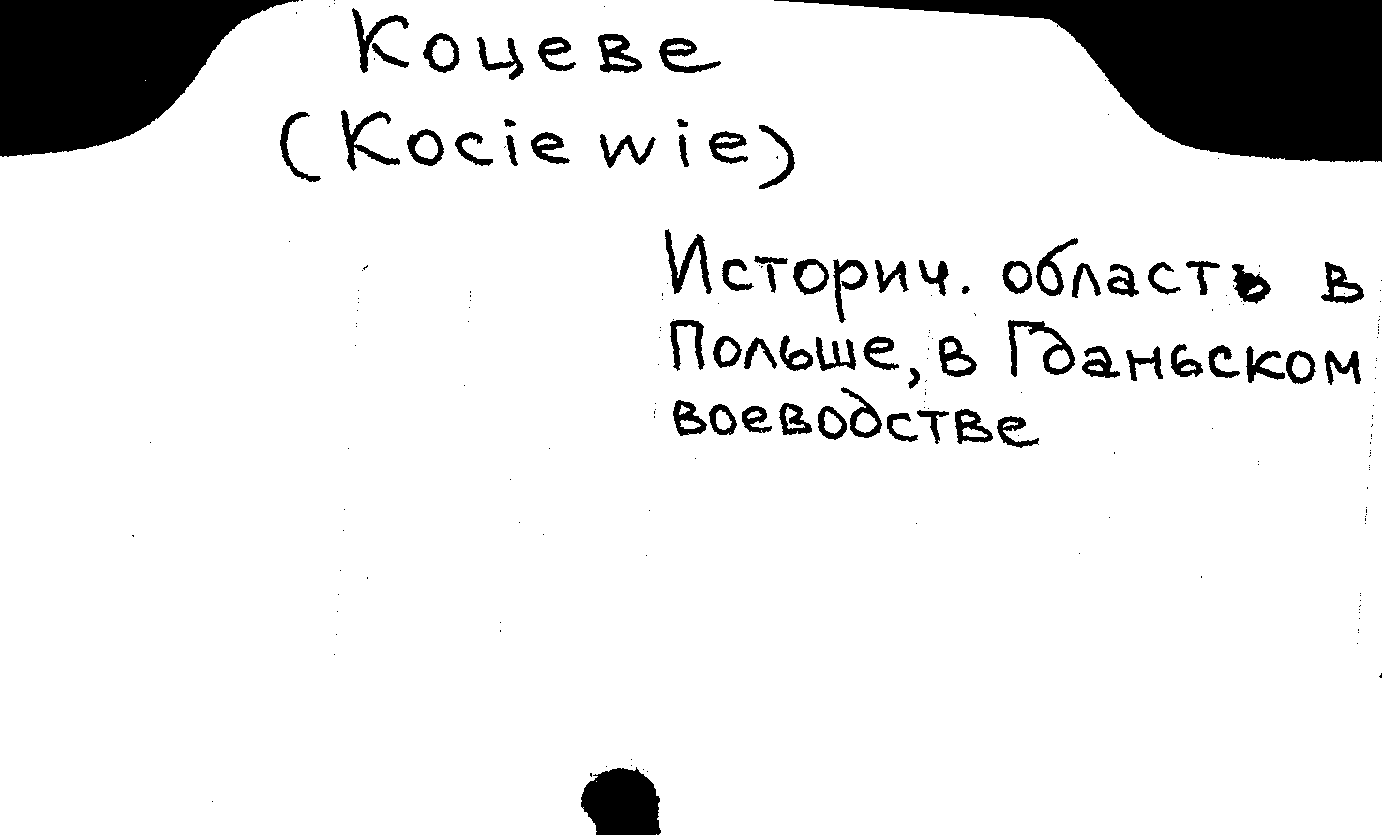 Коцеве
(Kociewie)
Историч. область в
Польше, в Гданьском
воеводстве